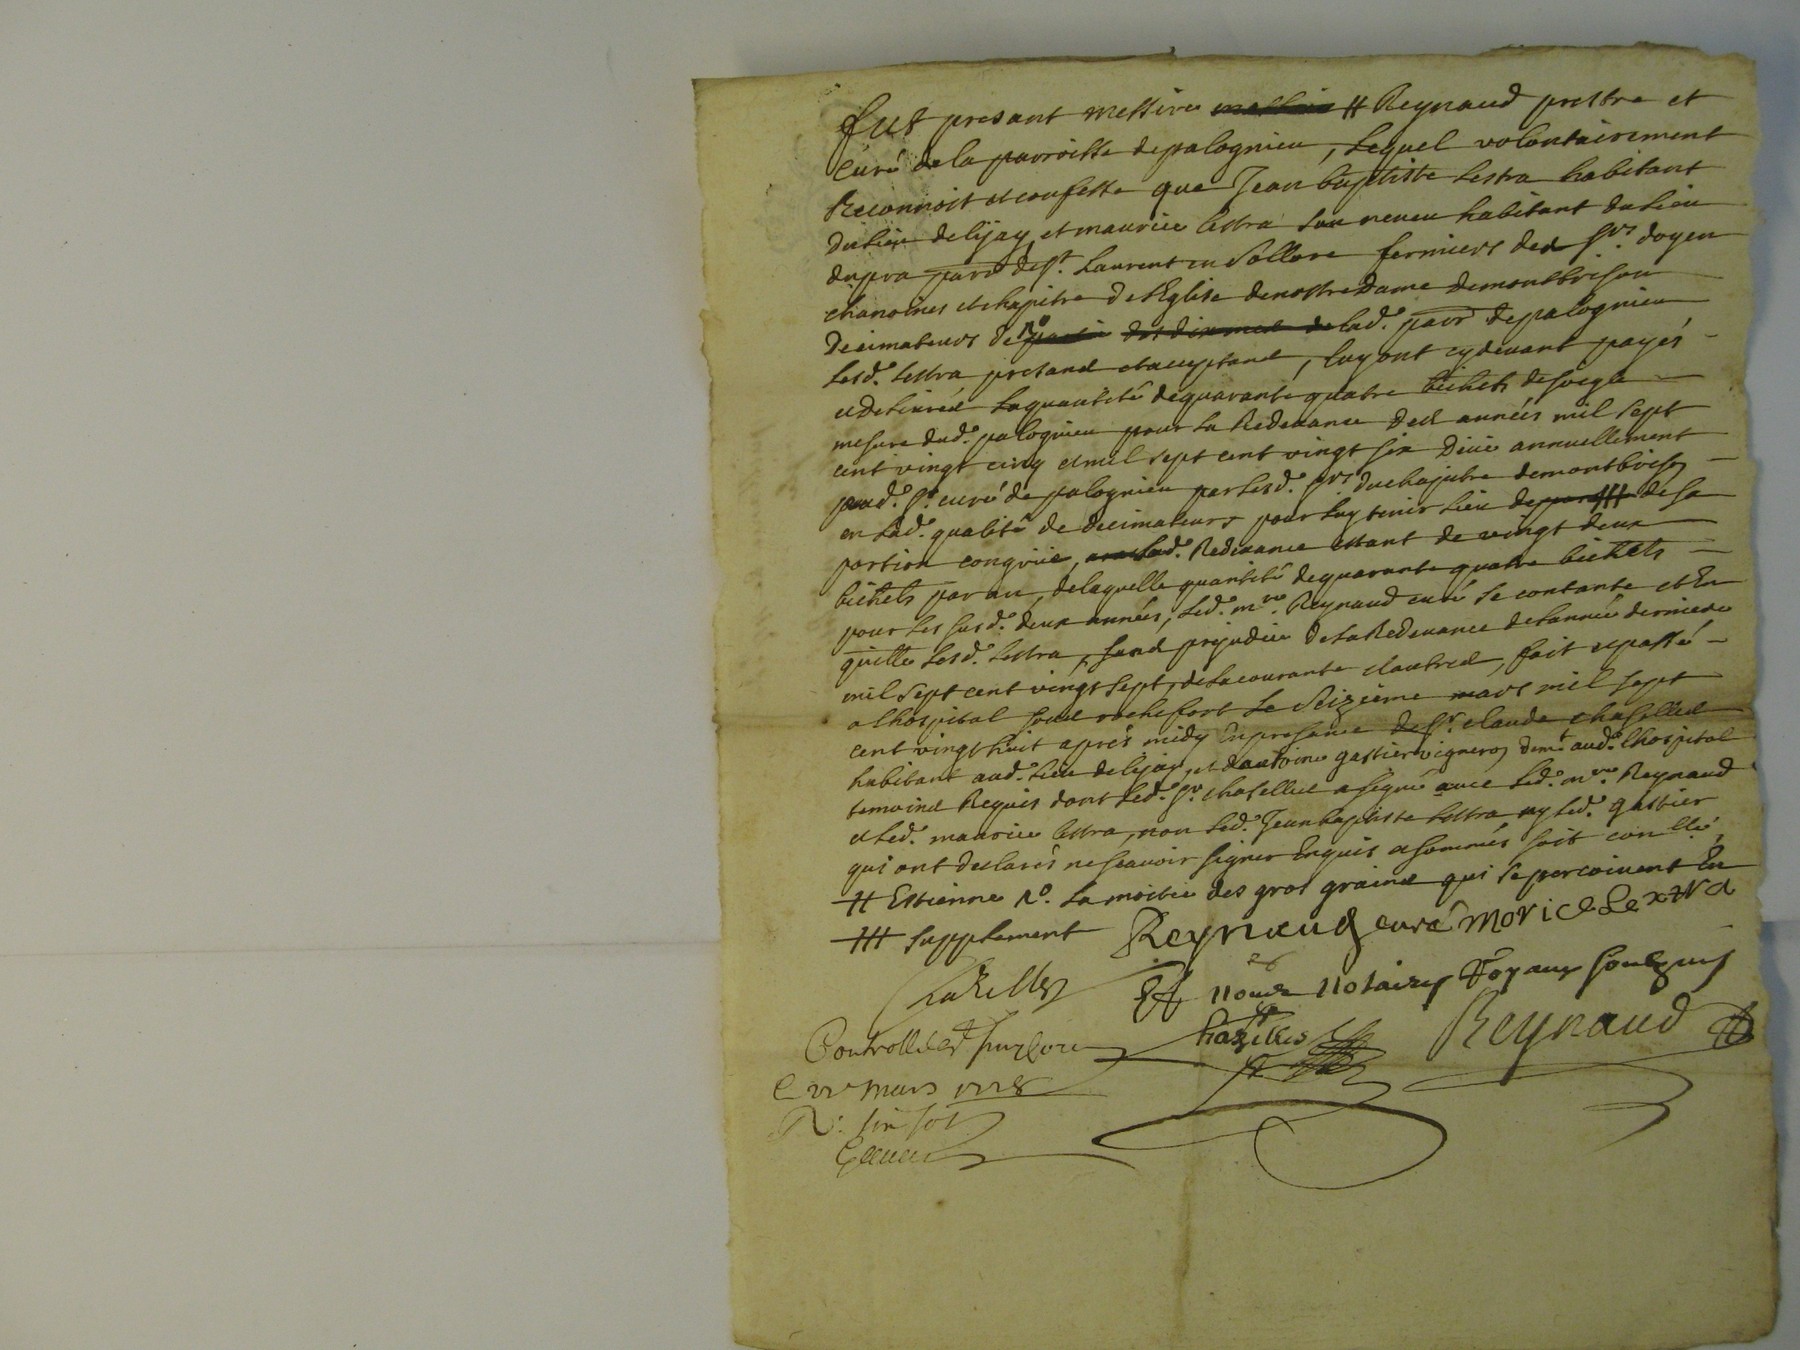 fut presant messire # Reynaud prestre et
Curé de la parroisse de palognieu, Lequel volontairement
Reconnoit et confesse que Jean baptiste Lestra habitant
du Lieu de lijay et maurice Lestra son neveu habitant du Lieu
dupra parr. de st. Laurent en Sollore fermiers des srs. doyen
chanoines et chapitre de l'Eglise de nostre Dame de montbrison
Decimateurs de Ro lad. parr. de palognieu
Lesd. Lestra presans et acceptans, luy ont cy devant payés
et delivrés la quantité de quarante quatre bichets de segle
mesure dud. palognieu pour La Redevance des années mil sept
cent vingt cinq et mil sept cent vingt six Deüe annuellement
aud. sr. curé de palognieu par Lesd. srs. du chapitre de montbrison
en Lad. qualité de decimateurs pour Luy tenir Lieu de ### de sa
portion congrüe, Lad. Redevance estant de vingt deux
bichets par an, de laquelle quantité de quarante quatre bichets
pour Les susd. deux années, Led. mre. Reynaud curé se contante et En
quitte Lesd. Lestra, sans prejudice de La Redevance de l'année derniere
mil sept cent vingt sept, de La courante et autres, fait et passé
a l'hospital sous rochefort Le Seizieme mars mil sept
cent vingt huit aprés midy En presance de sr. claude chasselles
habitant aud. Lieu de lijay, et d'antoine gastier vigneron demt. aud. l'hospital
temoins Requis dont Led. sr. chaselles a signé avec Led. mre. Reynaud
et Led. maurice Lestra, non Led. Jean baptiste Lestra ny Led. gastier
qui ont declarés ne scavoir signer Enquis et sommés soit con llé,
# Estienne Ro. La moitié des gros grains qui se percoivent En
### supplement Reynaud curé Morice Lextra
Et Nous Notaires Royaux soubznes
Chazelles Reynaud
Controllé
Le 22e Mars 1728
R. six sols